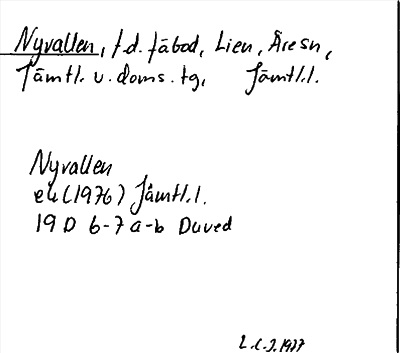 Nyvallen, f.d. fäbod, Lien, Åresn,
Jämtl. v. doms. tg, Jämtl.l.
Nyvallen
ek (1976) Jämtl.l.
19 D 6-7 a-b Duved
1977